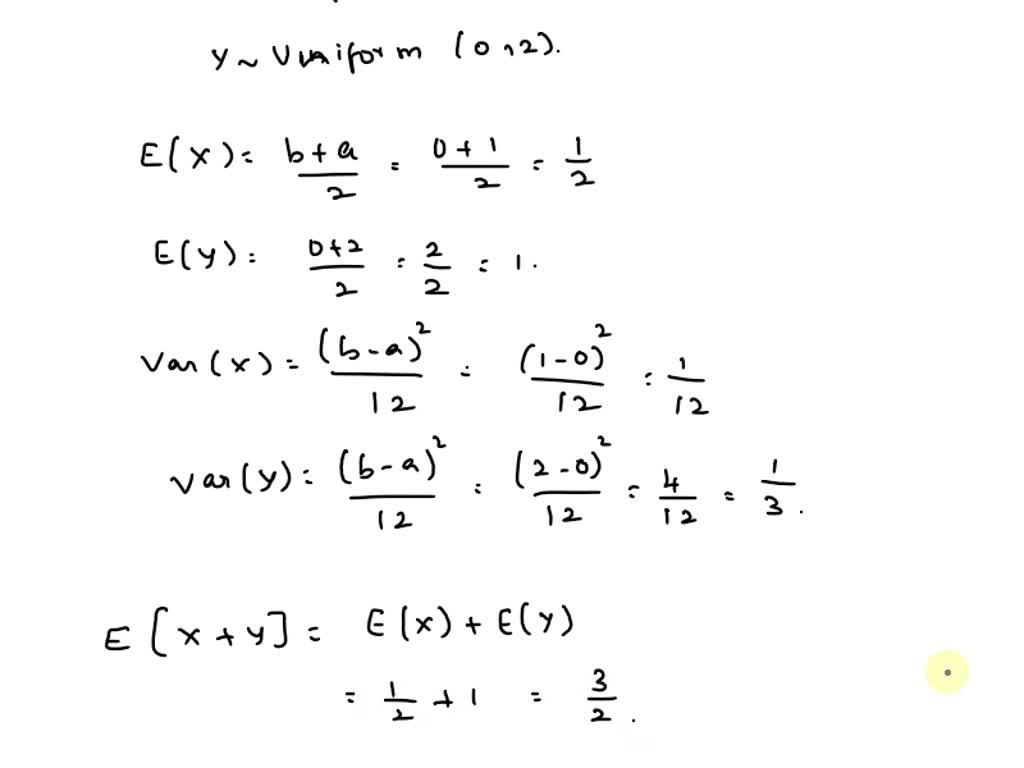 Y ~ Uniform (0,2).
E(X) = b+a/2 = 0+1/2 = 1/2
E(Y) = 0+2/2 = 2/2 = 1.
Var(X) = (b-a)²/12 = (1-0)²/12 = 1/12
Var(Y) = (b-a)²/12 = (2-0)²/12 = 4/12 = 1/3.
E[X+Y] = E(X) + E(Y)
= 1/2 + 1 = 3/2.